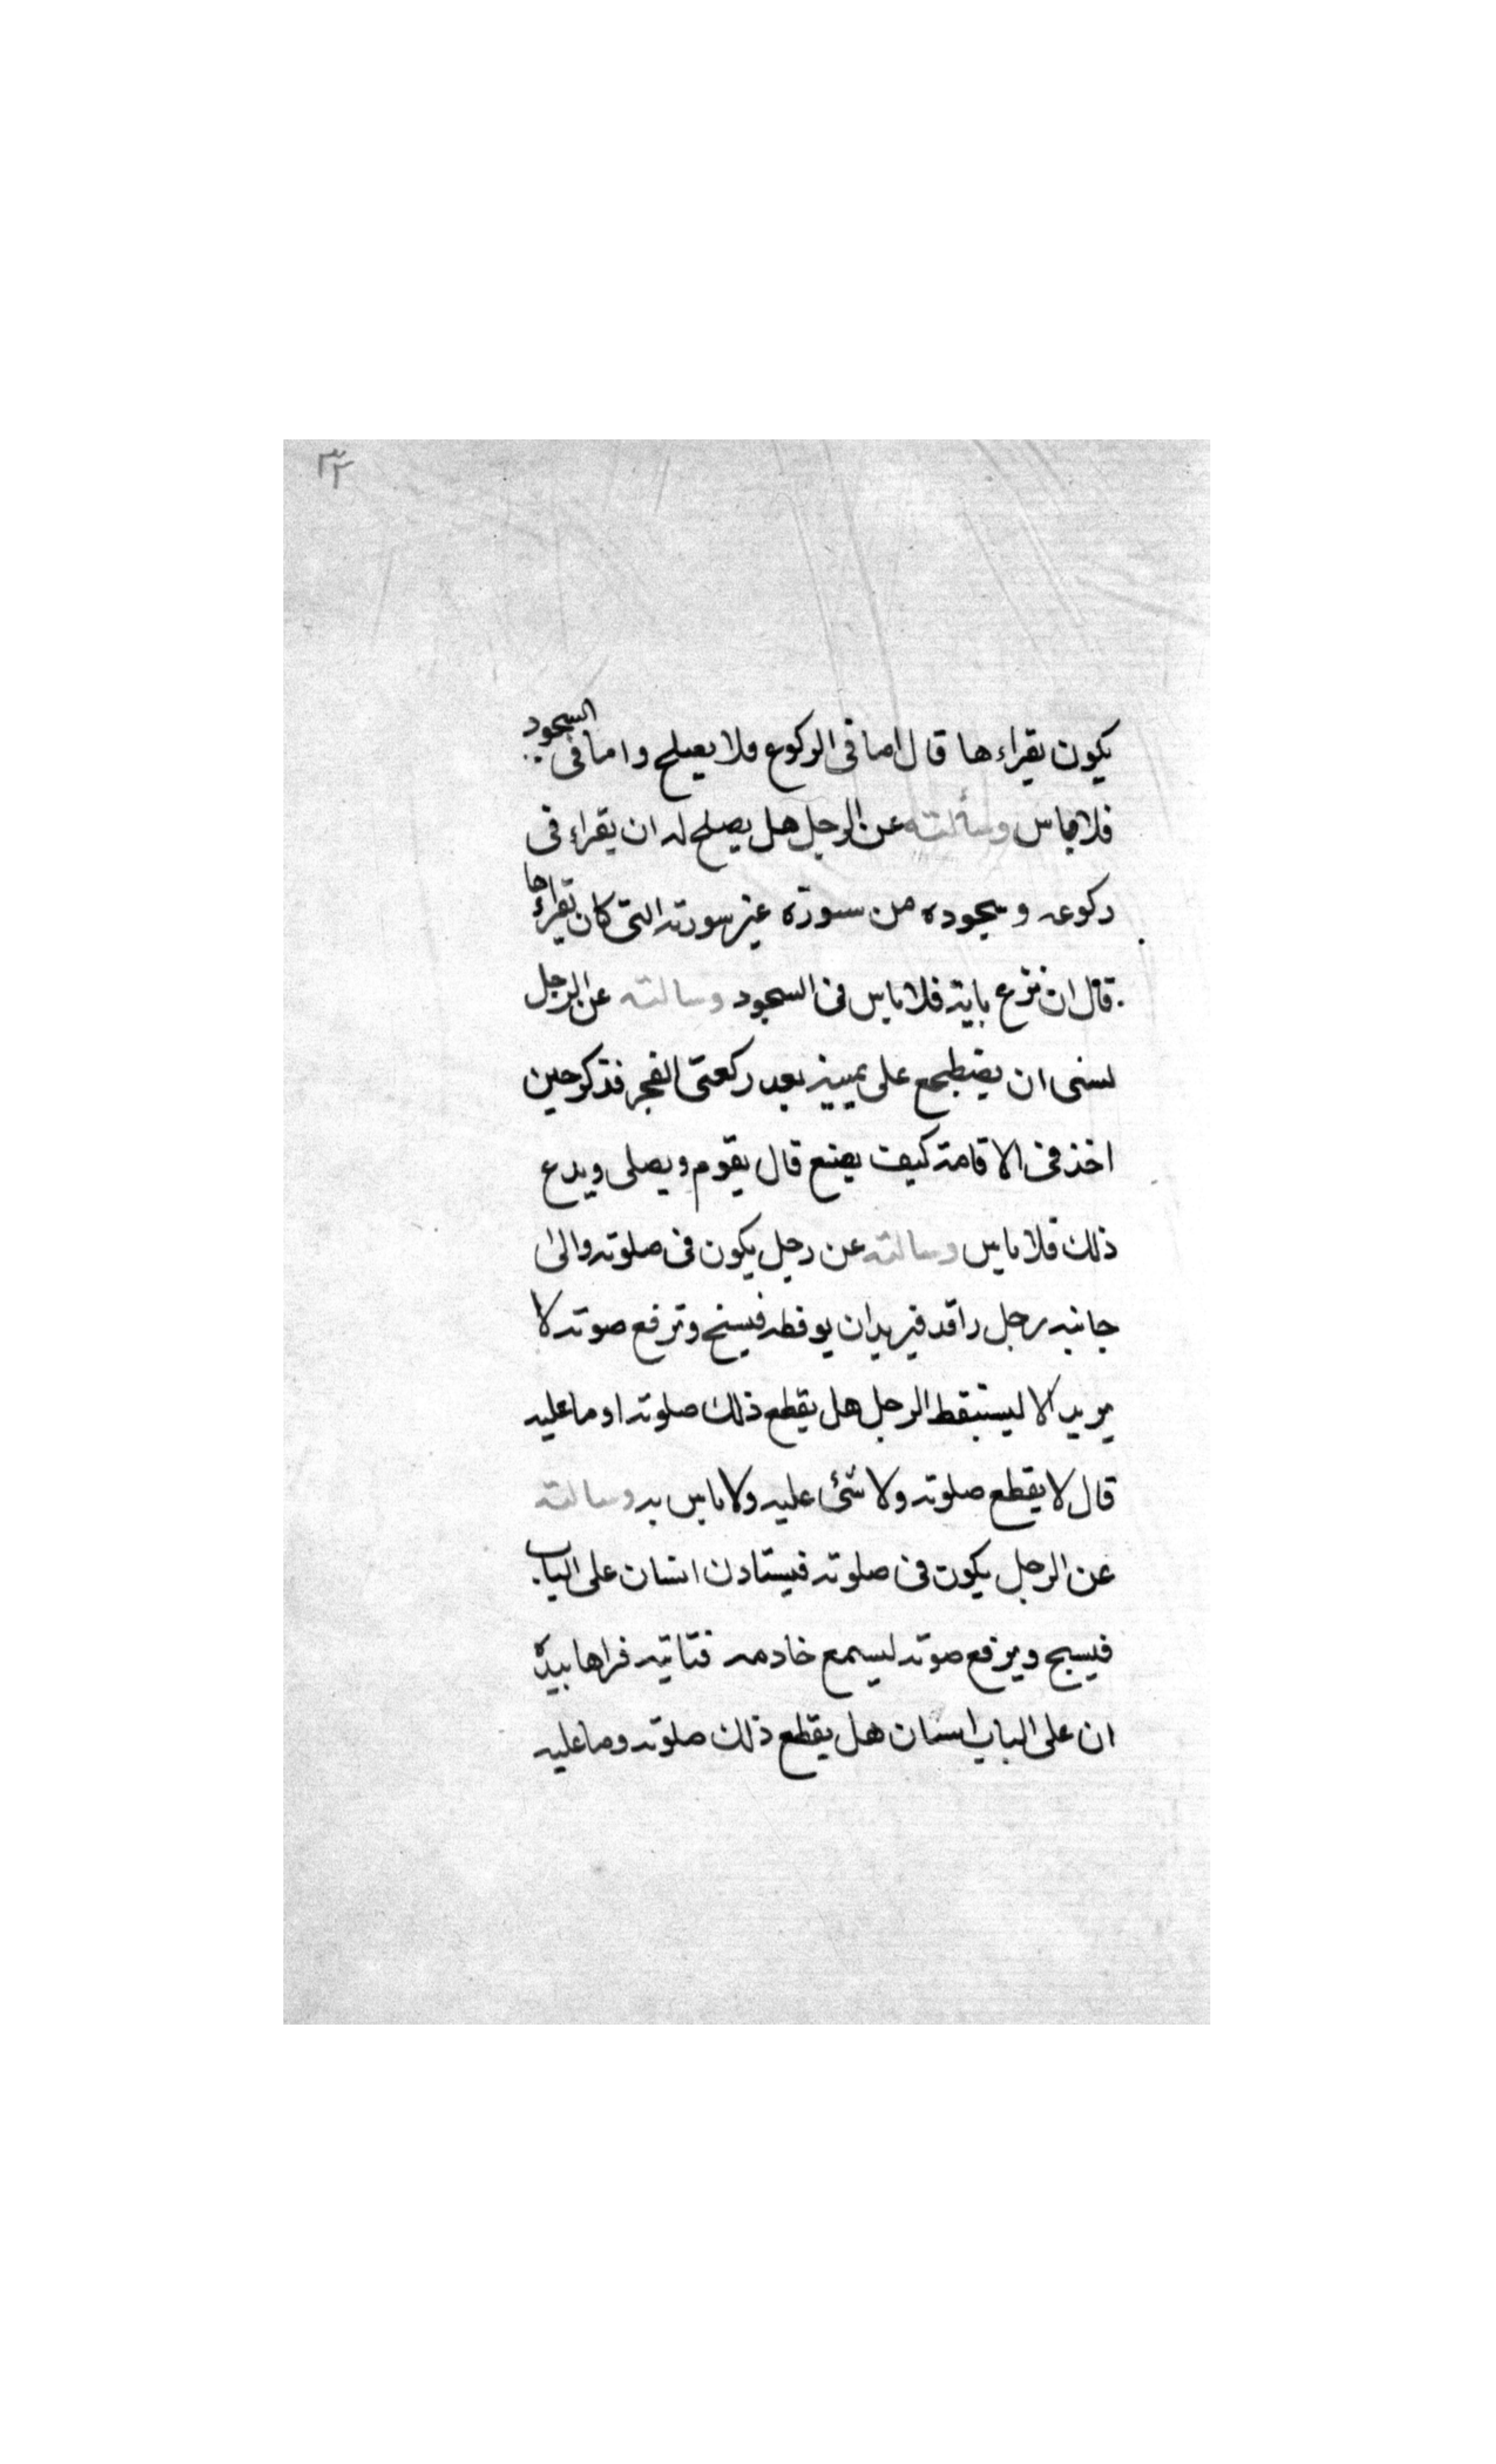 ٣٢
يكون يقراءها قال اما فى الركوع فلا يصلح واما فى السجود
فلا باس وسألته عن الرجل هل يصلح له ان يقراء فى
ركوعه وسجوده من سورة غير سورته التى كان يقراءها
قال ان نزع باية فلا باس فى السجود وسالته عن الرجل
نسى ان يضطجع على يمينه بعد ركعتى الفجر فذكر حين
اخذ فى الاقامة كيف يصنع قال يقوم ويصلى ويدع
ذلك فلا باس وسالته عن رجل يكون فى صلوته والى
جانبه رجل راقد فيريد ان يوقظه فيسبح وترفع صوته لا
يريد الا ليستيقظ الرجل هل يقطع ذلك صلوته او ما عليه
قال لا يقطع صلوته ولا شئ عليه ولا باس به وسالته
عن الرجل يكون فى صلوته فيستاذن انسان على الباب
فيسبح ويرفع صوته ليسمع خادمه فتاتيه فراها بيده
ان على الباب انسان هل يقطع ذلك صلوته وما عليه